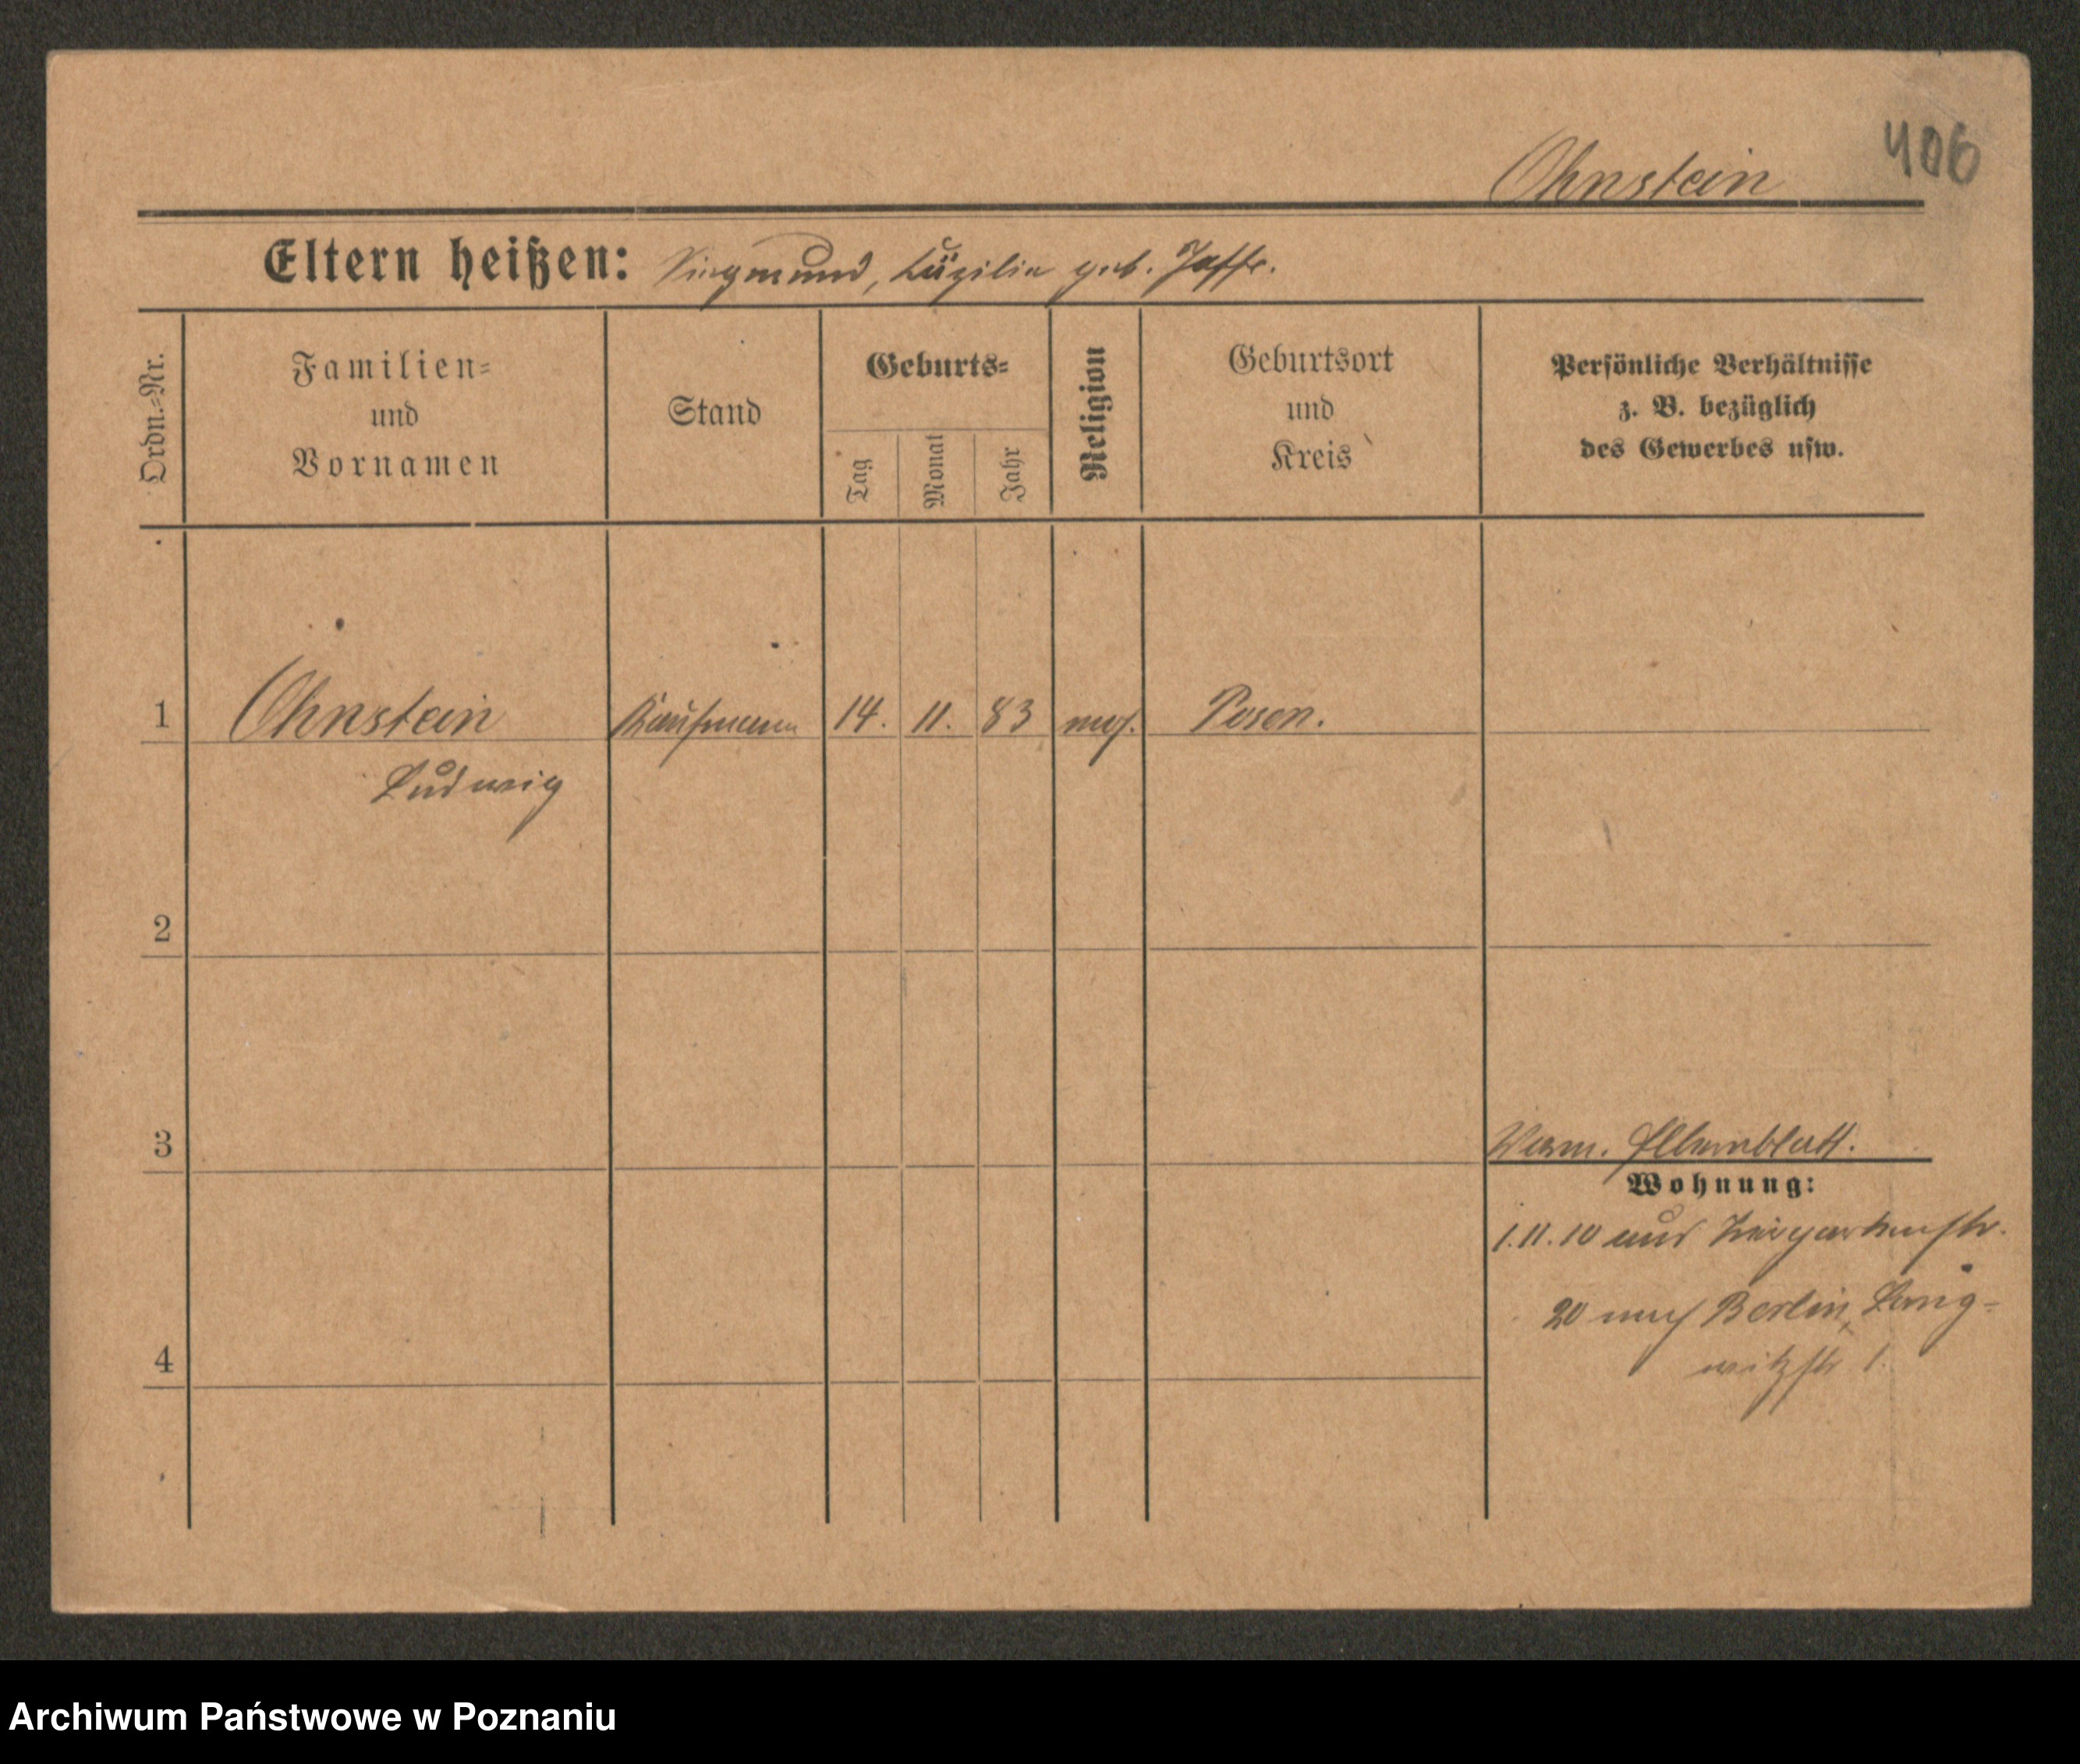 406
Ohnstein
Eltern heißen: Siegmund, Cäzilie geb. Jaffe.
Ordn.-Nr.
Familien-
und
Vornamen
Stand
Geburts-
Tag
Monat
Jahr
Religion
Geburtsort
und
Kreis
Persönliche Verhältnisse
z. B. bezüglich
des Gewerbes usw.
1 Ohnstein Kaufmann 14. 11. 83 mos. Posen.
Ludwig
2
3
Verm. Elternblatt.
Wohnung:
1.11.10 aus Tiergartenstr.
20 nach Berlin,
4
1.
Archiwum Państwowe w Poznaniu